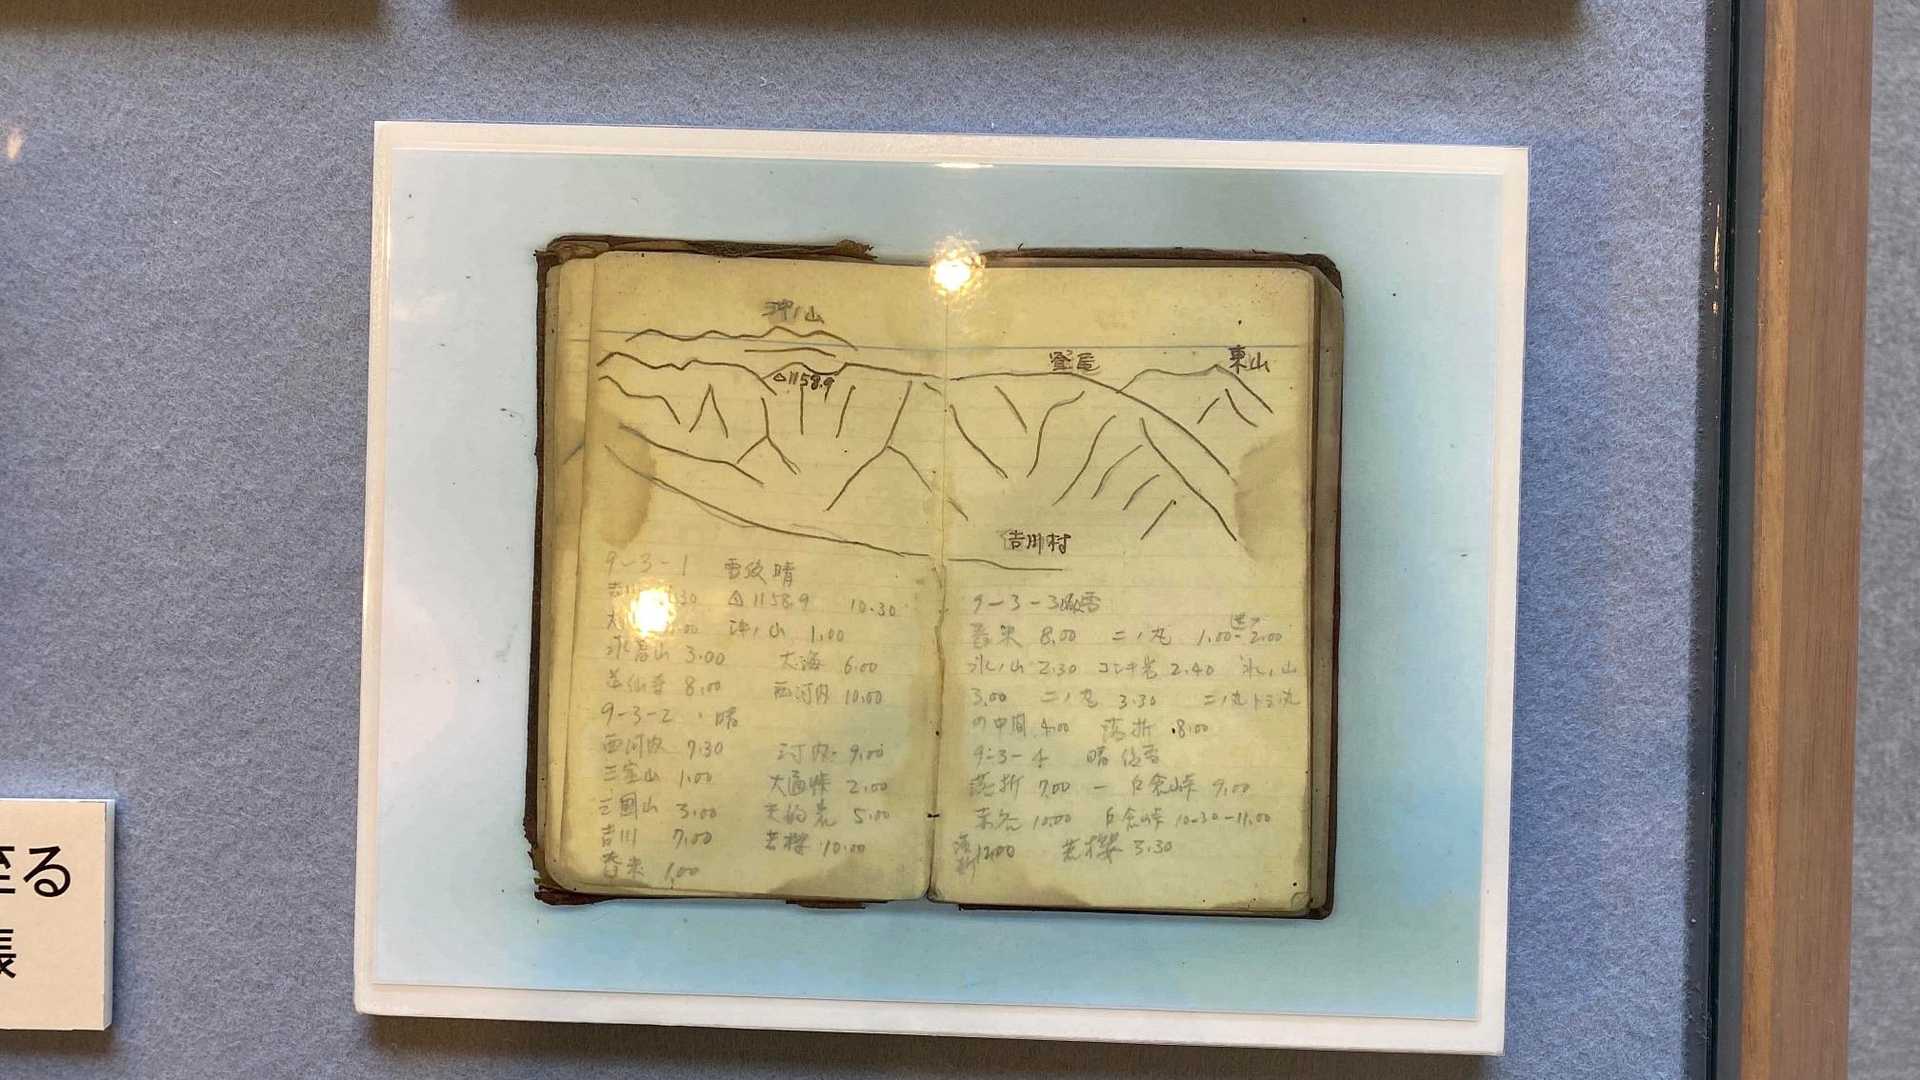 沖ノ山
△1158.9
東山
吉川村
9-3-1 雪後晴
30 △1158.9 10.30
.00 沖ノ山 1.00
氷ノ山 3.00 大海 6.00
8.00 西河内 10.00
9-3-2 晴
西河内 7.30 河内 9.00
三室山 1.00 大通峠 2.00
三國山 3.00 5.00
吉川 7.00 若桜 10.00
舂米 1.00
9-3-3 風雪
舂米 8.00 二ノ丸 1.00-2.00
氷ノ山 2.30 コシキ岩 2.40 氷ノ山
3.00 二ノ丸 3.30 二ノ丸ト三ノ丸
の中間 4.00 落折 8.00
9-3-4 晴後雪
落折 7.00 - 戸倉峠 9.00
10.00 戸倉峠 10-30-11.00
落折 12.00 若櫻 3.30
至る
帳